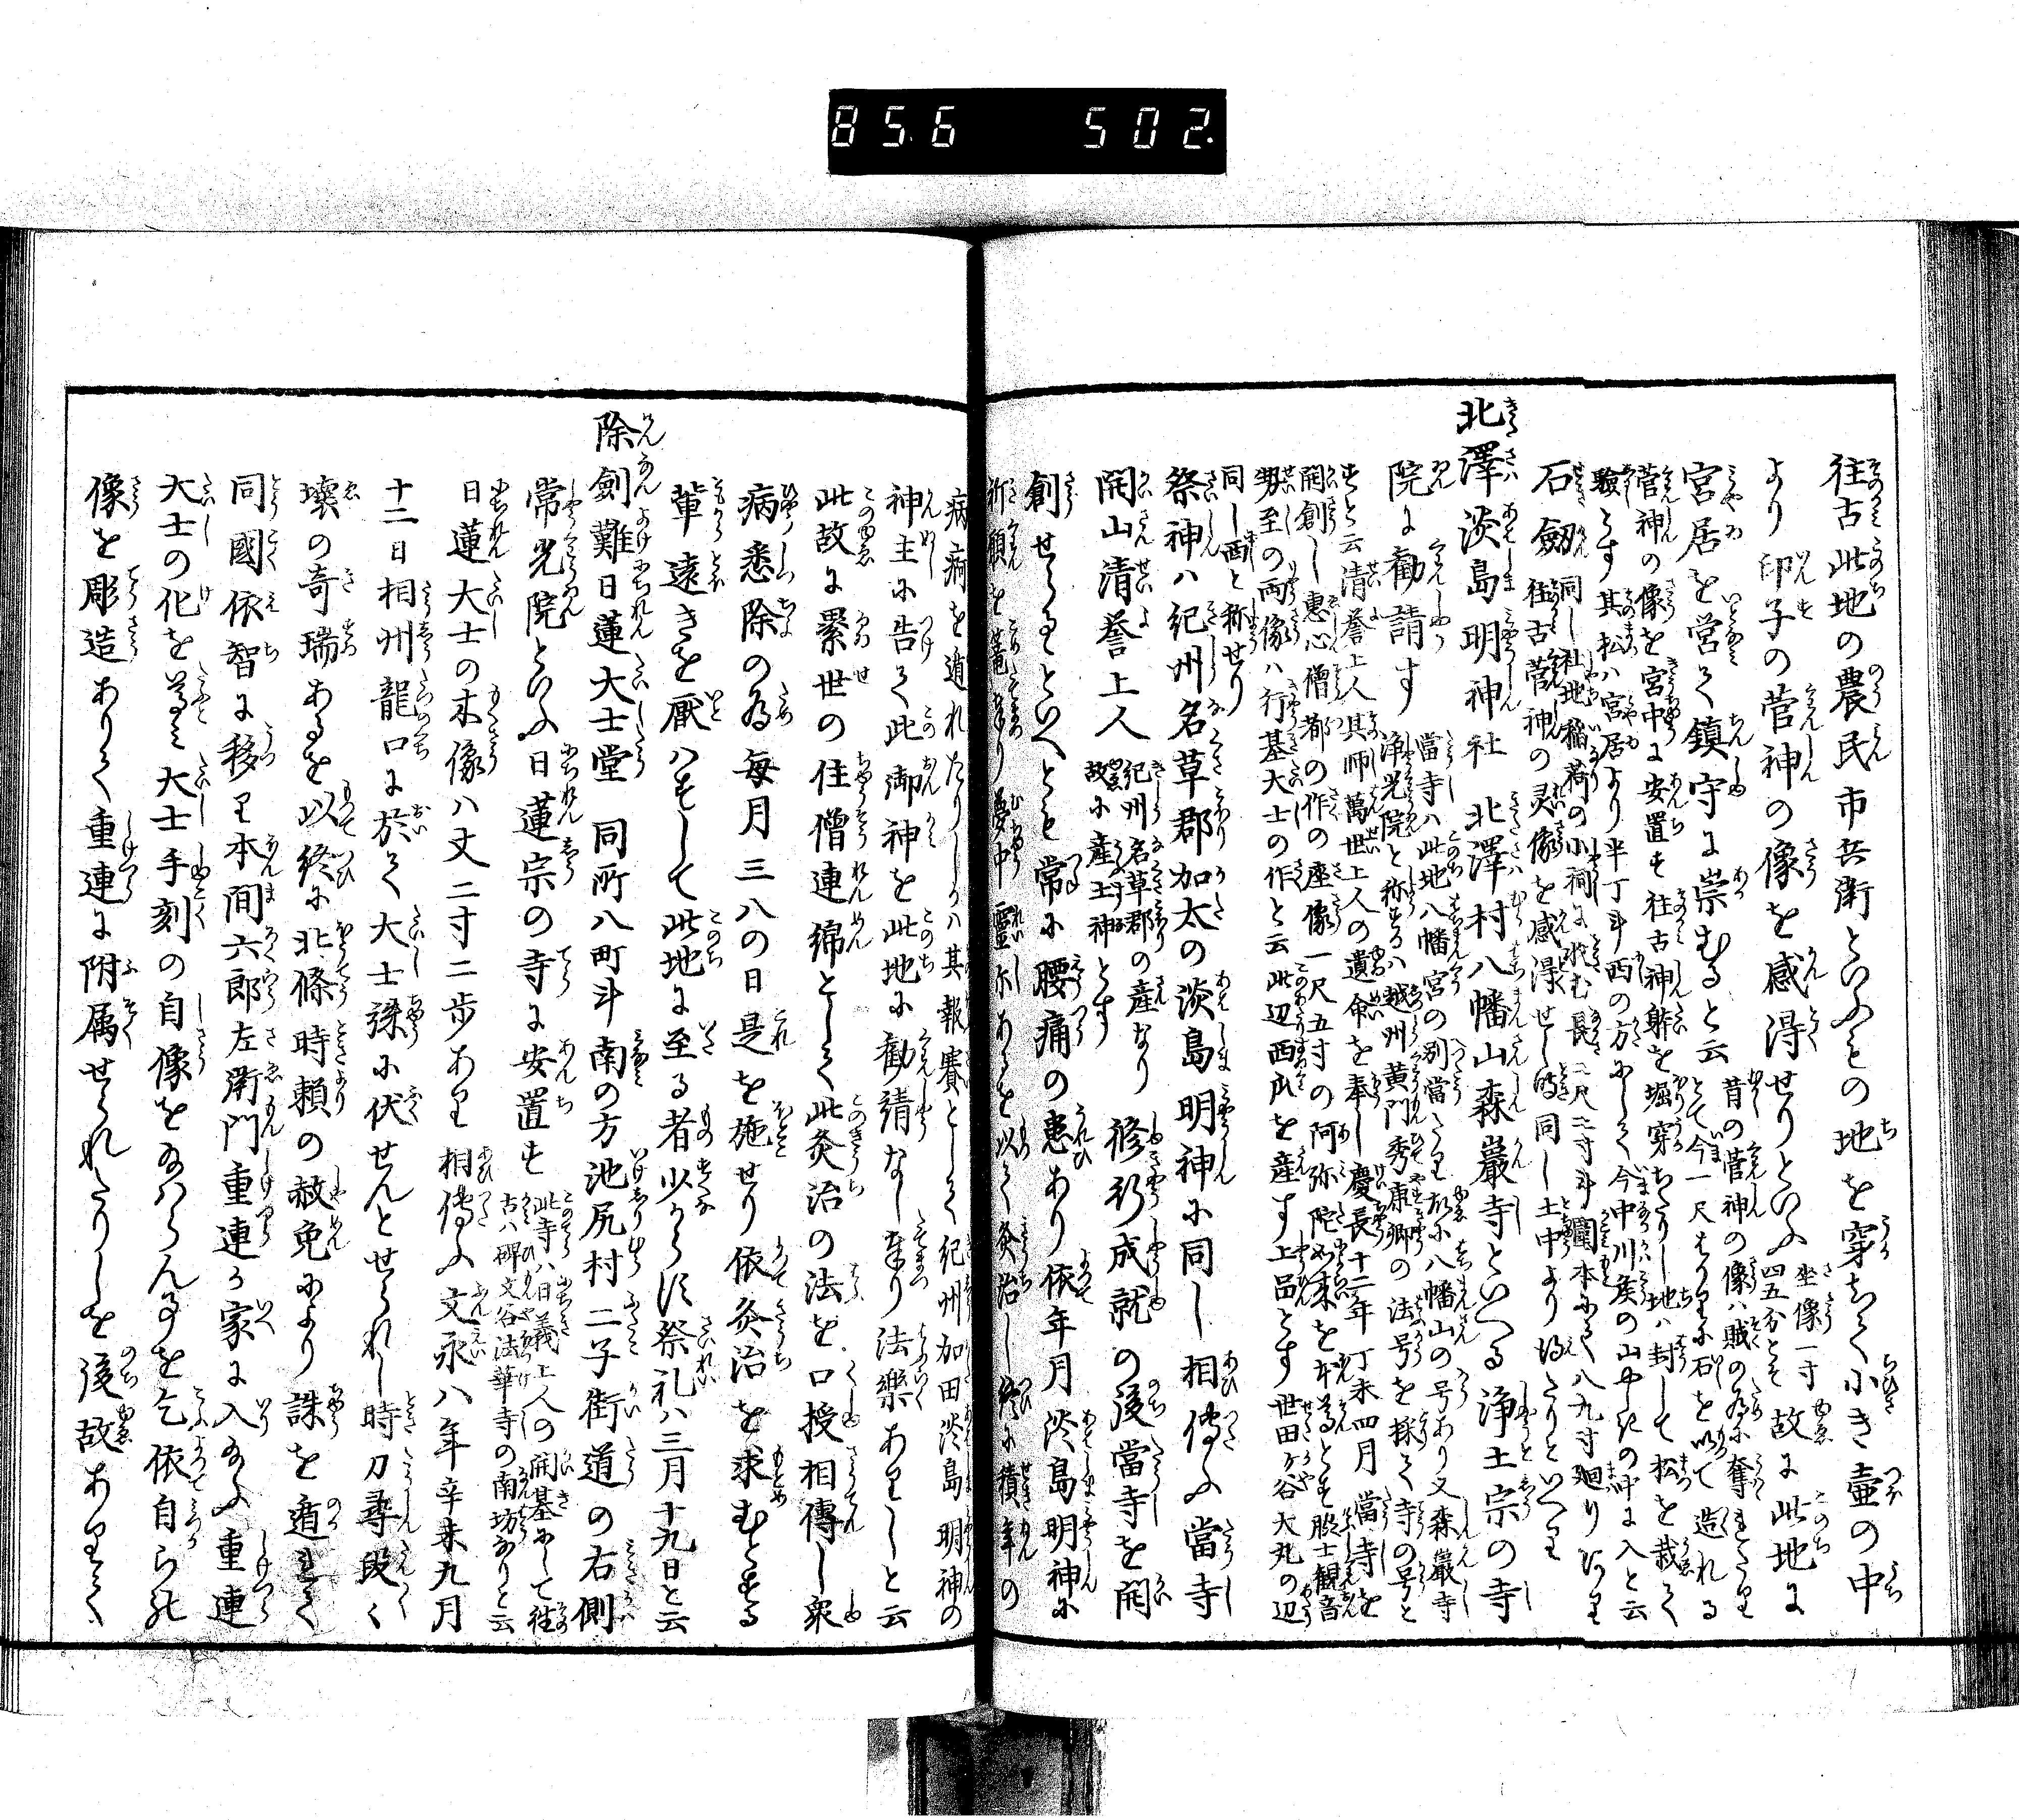 85.6 502.
往古此地の農民市兵衛といふもの地を穿ちて小き壷の中
より印子の菅神の像を感得せりといふ 坐像一寸四五分とそ 故に此地に
宮居を営て鎮守に崇むると云 昔の菅神の像ハ賊の為に奪れたりとて今一尺はかりに石を以て造れる
菅神の像を宮中に安置せり往古神躰を堀穿ちたりし地ハ封して松を栽て
験とす其松ハ宮居より半丁斗西の方にして今中川侯の山やしきの中に入と云
石劔 同し社地稲荷の小祠に収む長二尺二寸斗圍本にて八九寸廻りあり
往古菅神の灵像を感得せし時同し土中より得たりといへり
北澤淡島明神社 北澤村八幡山森巖寺といへる浄土宗の寺
院に勧請す 當寺ハ此地八幡宮の別當たり故に八幡山の号あり又森巖寺
浄光院と称するハ越州黄門秀康卿の法号を採て寺の号と
すと云清誉上人其師萬世上人の遺命を奉し慶長十二年丁未四月當寺を
開創し恵心僧都の作の座像一尺五寸の阿弥陀如来を本尊とす脇士観音
勢至の両像ハ行基大士の作と云此辺西瓜を産す上品とす世田ヶ谷大丸の辺
同し 称せり
祭神ハ紀州名草郡加太の淡島明神に同し相傳ふ當寺
開山清誉上人 紀州名草郡の産なり故に産土神とす 修行成就の後當寺を開
創せらるといへとも常に腰痛の患あり依年月淡島明神に
祈願を籠奉り夢中霊示あるを以て灸治し終に積年の
病痾を遁れたりしかハ其報賽として紀州加田淡島明神の
神主に告て此御神を此地に勧請なし奉り法樂ありしと云
此故に累世の住僧連綿として此灸治の法を口授相傳し衆
病悉除の為毎月三八の日是を施せり依灸治を求むとする
輩遠きを厭ハすして此地に至る者少からす祭礼ハ三月十九日と云
除劍難日蓮大士堂 同所八町斗南の方池尻村二子街道の右側
常光院といふ日蓮宗の寺に安置す 此寺ハ日義上人の開基にして往
古ハ碑文谷法華寺の南坊なりと云
日蓮大士の木像ハ丈二寸二歩あり相傳ふ文永八年辛未九月
十二日相州龍口に於て大士誅に伏せんとせられし時刀尋段く
壊の奇瑞あるを以終に北條時頼の赦免により誅を遁れて
同國依智に移り本間六郎左衛門重連か家に入給ふ重連
大士の化を尊み大士手刻の自像を給ハらん事を乞依自ら躰
像を彫造ありて重連に附属せられたりしを後故ありて